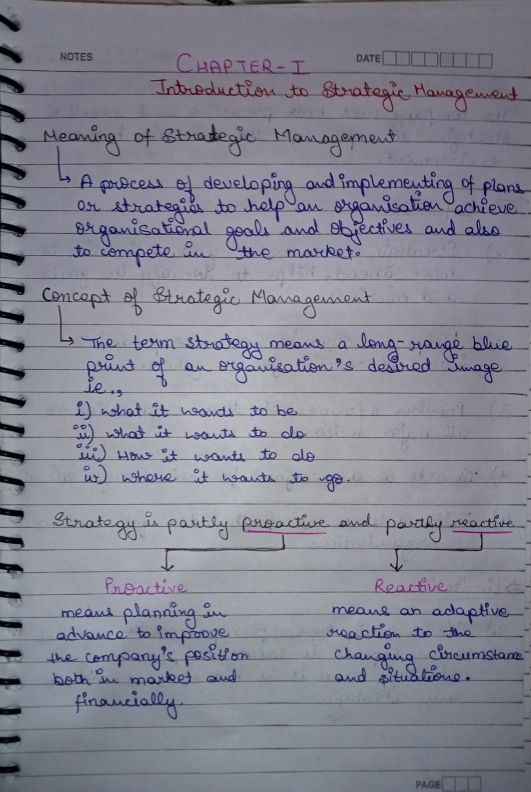 NOTES
CHAPTER-I
DATE
Introduction to Strategic Management
Meaning of Strategic Management
A process of developing and implementing of plans
or strategies to help an organisation achieve
organisational goals and objectives and also
to compete in the market.
Concept of Strategic Management
The term strategy means a long-range blue
print of an organisation's desired image
ie.,
i) what it wants to be
ii) what it wants to do
iii) How it wants to do
iv) where it wants to go.
Strategy is partly proactive and partly reactive
Proactive
means planning in
advance to improve
the company's position
both in market and
financially.
Reactive
means an adaptive
reaction to the
changing circumstance
and situations.
PAGE